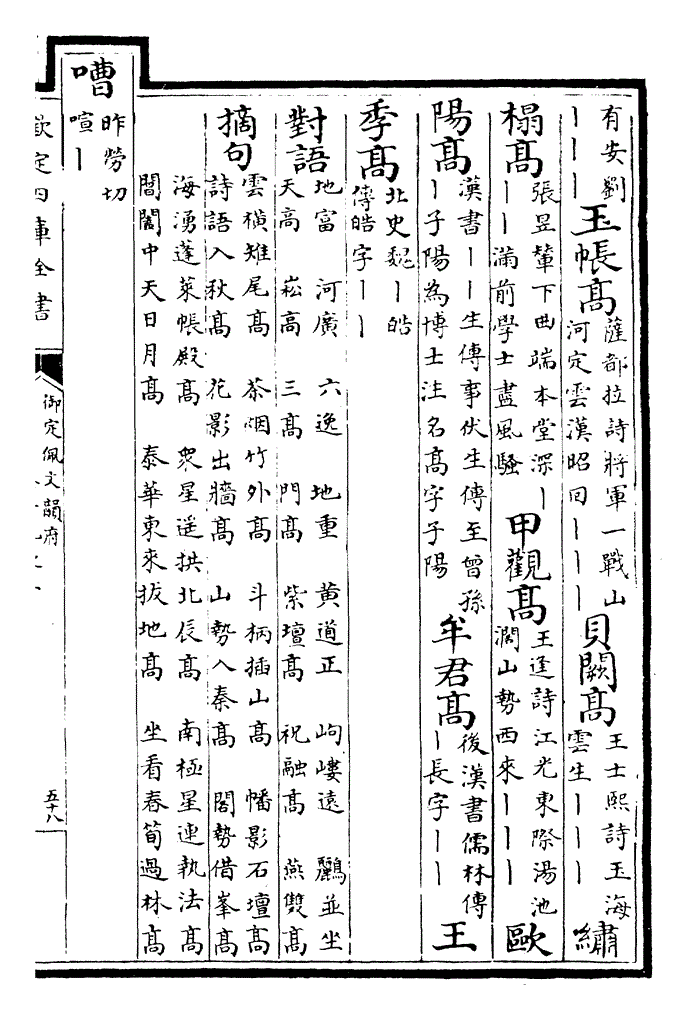 有安劉
丨丨丨
玉帳高
薩都拉詩將軍一戰山
河定雲漢昭回丨丨丨
貝闕高
王士熙詩玉海
雲生丨丨丨
繡
榻高
張昱輦下曲端本堂深丨
丨丨滿前學士盡風騷
甲觀高
王逢詩江光東際湯池
濶山勢西來丨丨丨
歐
陽高
漢書丨丨生傳事伏生傳至曾孫
丨子陽為博士注名高字子陽
牟君高
後漢書儒林傳
丨長字丨丨
王
季高
北史魏丨皓
傳皓字丨丨
對語
地富 河廣 六逸 地重 黃道正 岣嶁遠 鸝並坐
天高 崧高 三高 門高 紫壇高 祝融高 燕雙高
摘句
雲楨雉尾高 茶烟竹外高 斗柄插山高 幡影石壇高
詩語入秋高 花影出牆高 山勢入秦高 閣勢借峯高
海湧蓬萊帳殿高 衆星遥拱北辰高 南極星連執法高
閶闔中天日月高 泰華東來拔地高 坐看春筍過林高
嘈
昨勞切
喧丨
欽定四庫全書
御定佩文韻府
五十八